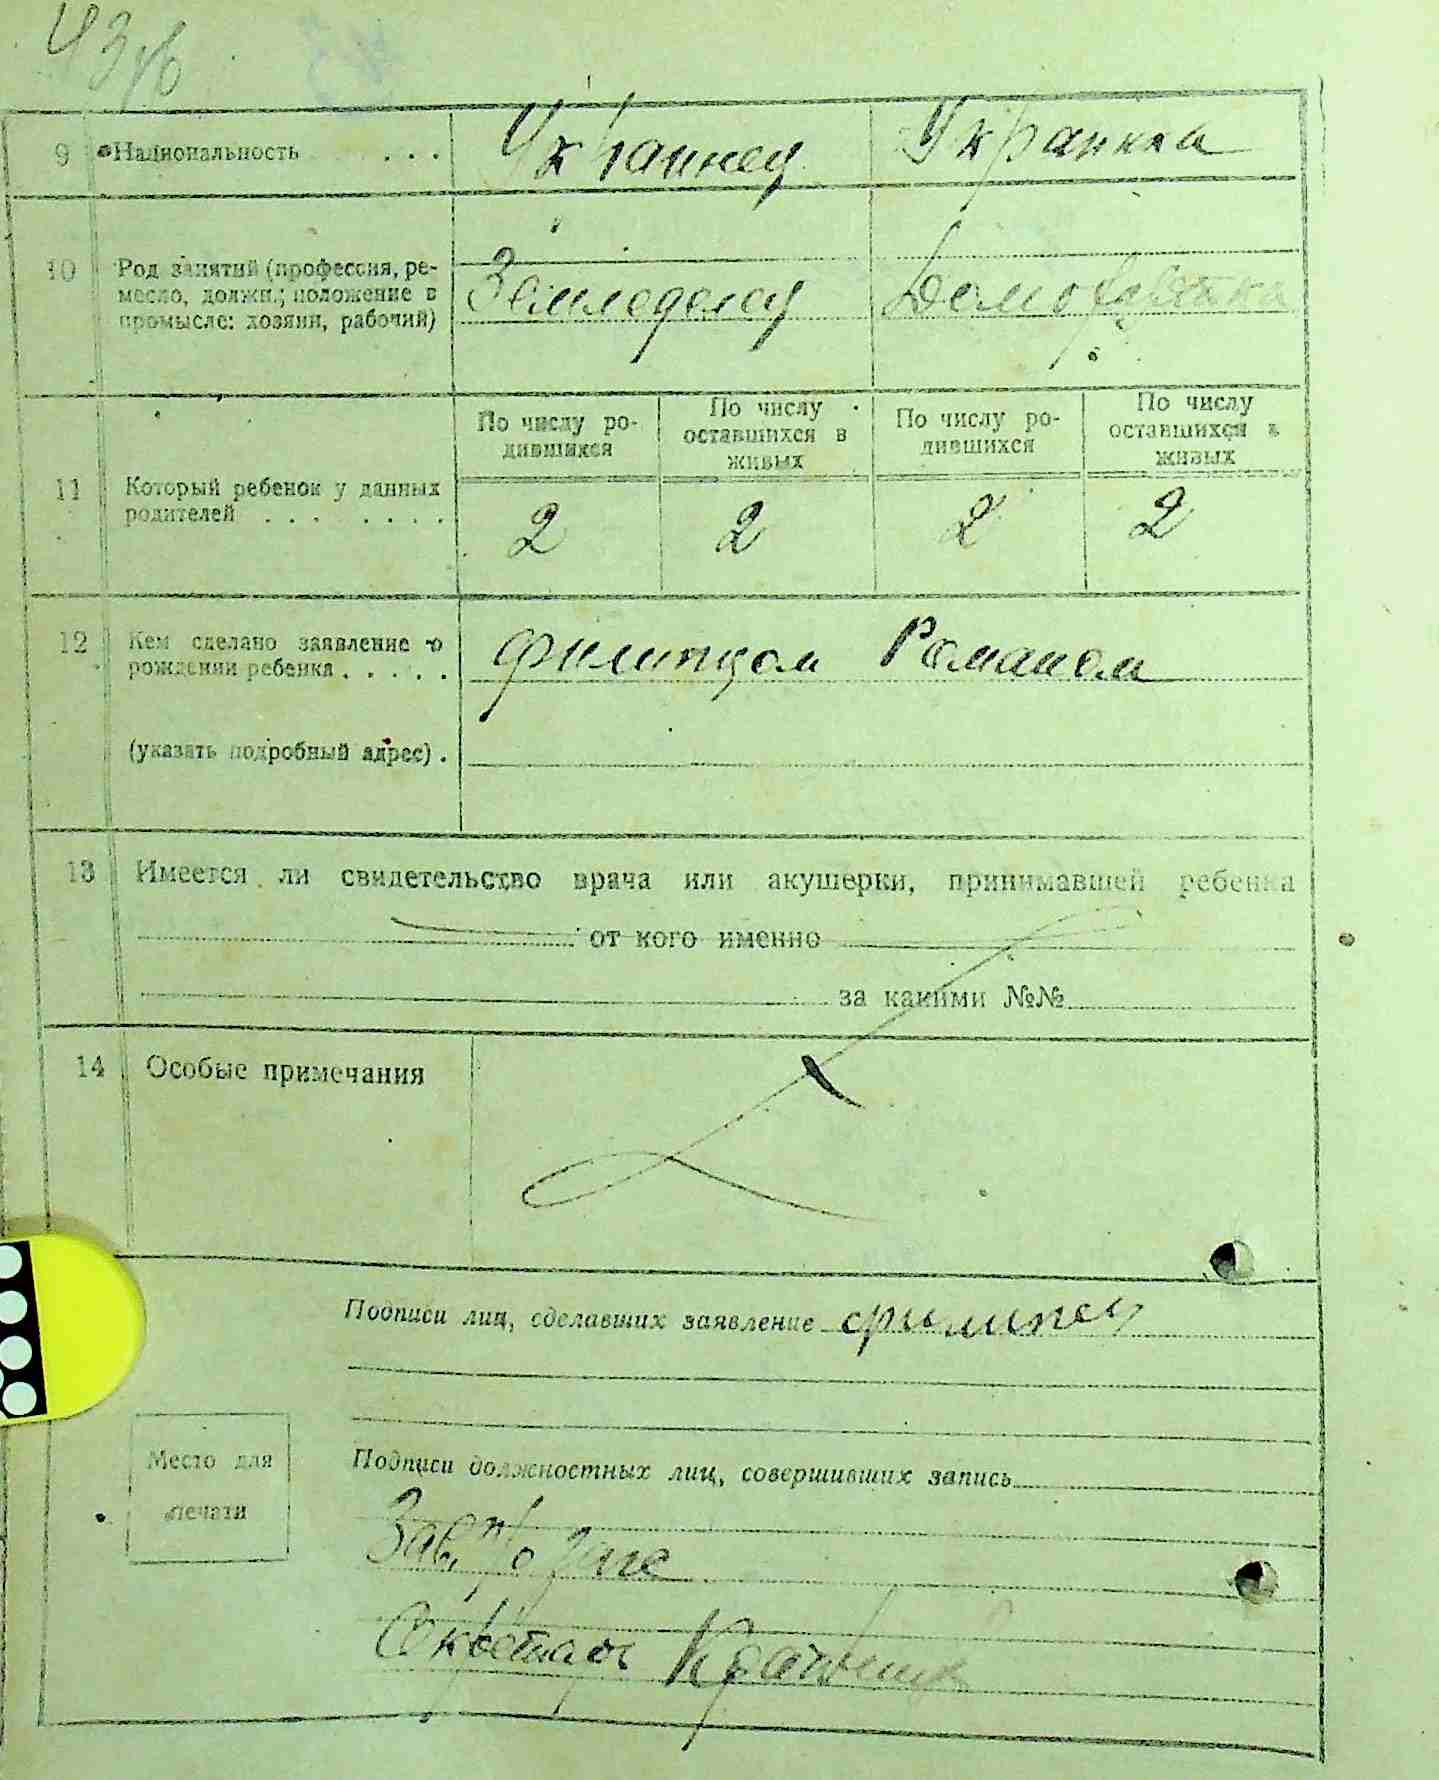 43 зв
9 Национальность . . . Украинец Украинка
10 Род занятий (профессия, ре-
месло, должн.; положение в
промысле: хозяин, рабочий)
Земледелец Домохазяйка
По числу ро-
дившихся
По числу
оставшихся в
живых
По числу ро-
дившихся
По числу
оставшихся в
живых
11 Который ребенок у данных
родителей . . . . . . .
2 2 2 2
12 Кем сделано заявление о
рождении ребенка . . . . .
Филипцом Романом
(указать подробный адрес) .
13 Имеется ли свидетельство врача или акушерки, принимавшей ребенка
от кого именно
за какими №№
14 Особые примечания
Подписи лиц, сделавших заявление Филипец
Место для
печати
Подписи должностных лиц, совершивших запись
Зав.
Секретарь